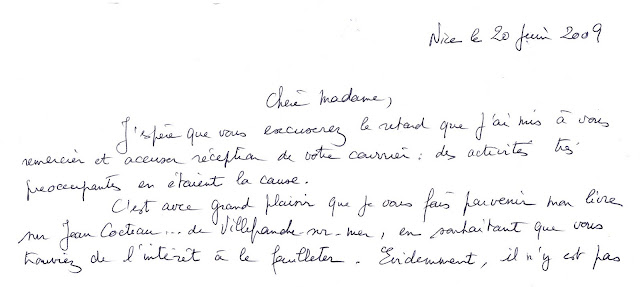 Nice le 20 Juin 2009
Chère Madame,
J'espère que vous excuserez le retard que j'ai mis à vous
remercier et accuser réception de votre courrier : des activités très
préoccupantes en étaient la cause.
C'est avec grand plaisir que je vous fais parvenir mon livre
sur Jean Cocteau... de Villefranche-sur-mer, en souhaitant que vous
trouviez de l'intérêt à le feuilleter. Evidemment, il n'y est pas